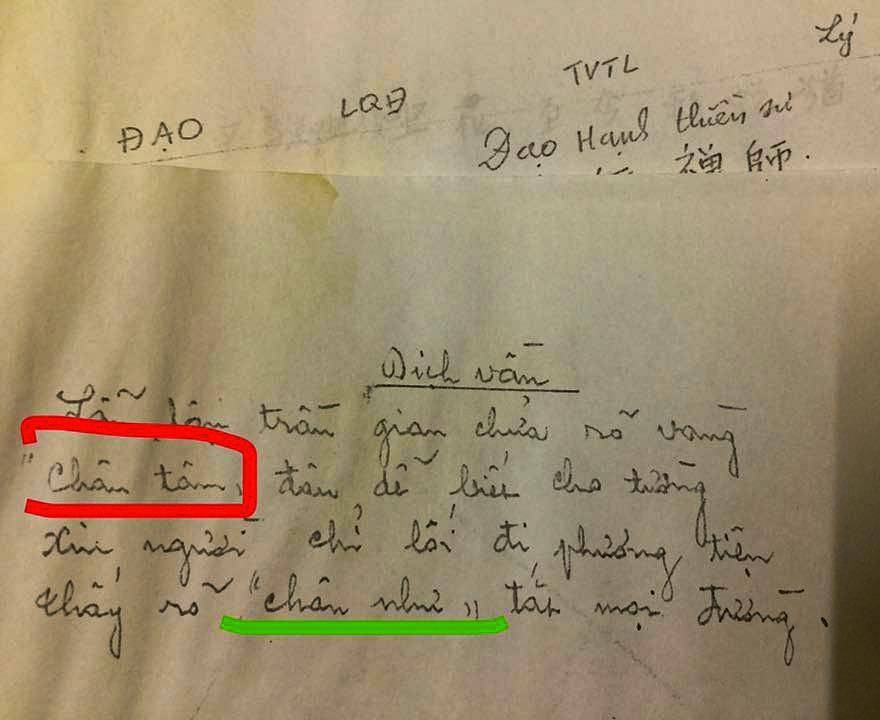 Lý
TVTL
LQĐ
ĐẠO
Đạo Hạnh thiền sư
禪師.
Dịch vần
Lẫn lộn trần gian chửa rõ vàng
"Chân tâm" đâu dễ biết cho tường
Xin người chỉ lối đi phương tiện
thấy rõ "chân như" tắt mọi đường.